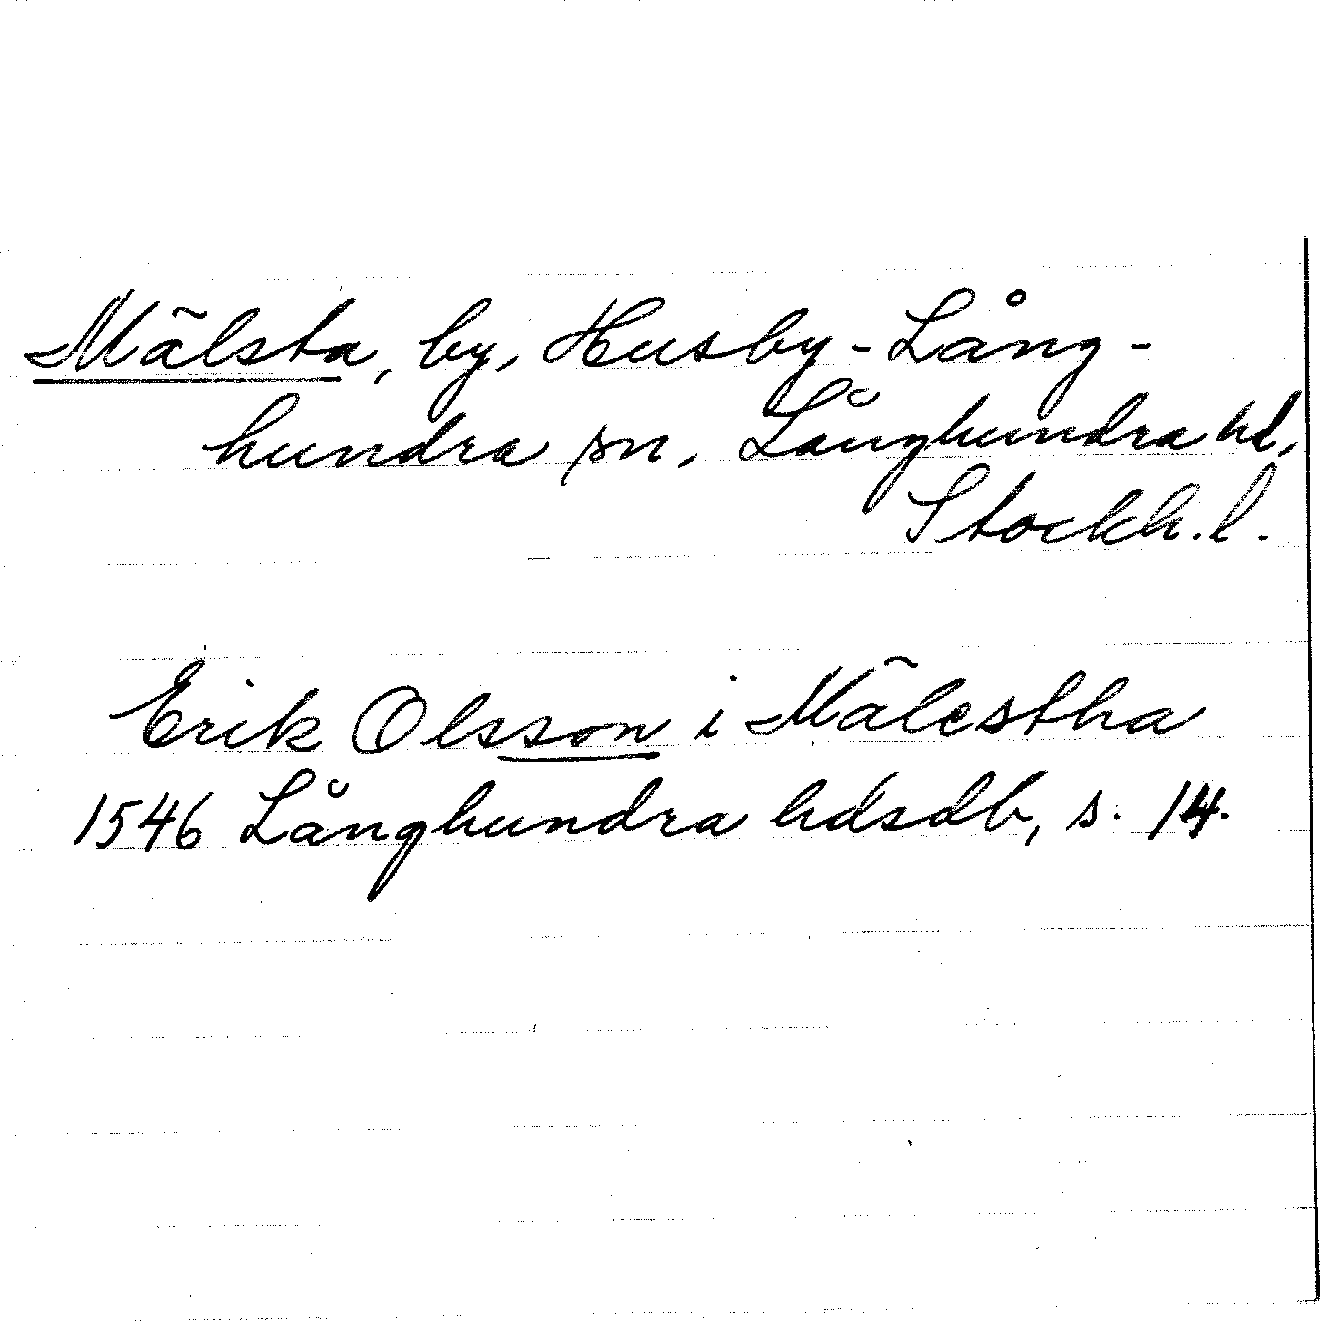 Mälsta, by, Husby-Lång-
hundra sn, Långhundra hd,
Stockh.l.
Erik Olsson i Mälestha
1546 Långhundra hdsdb, s. 14.